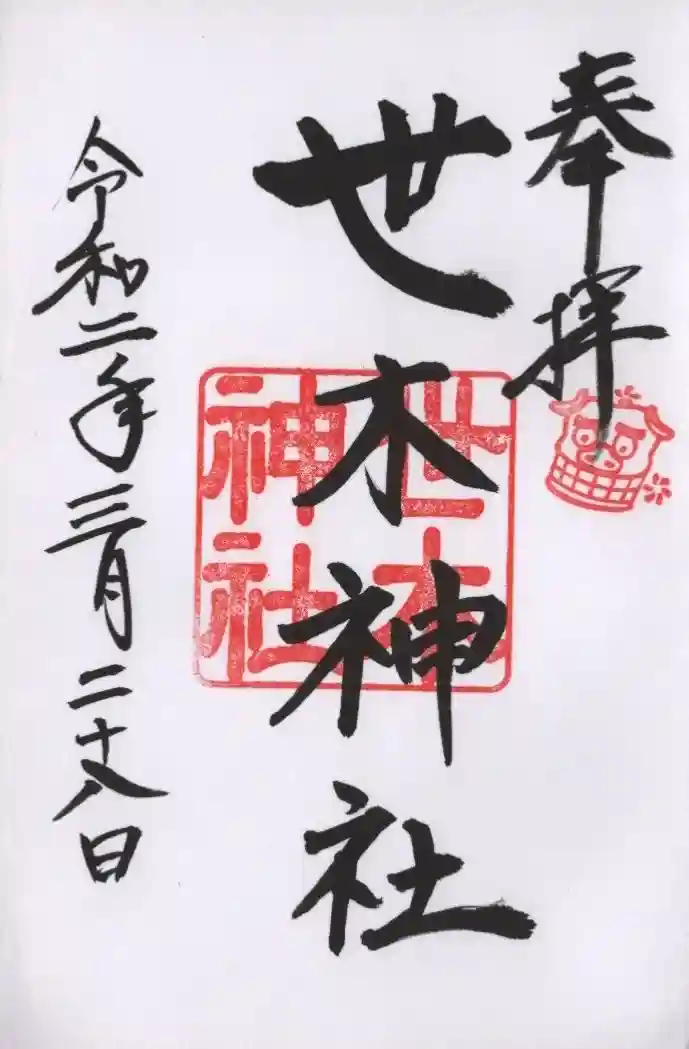 奉拝
世木神社
世木
神社
令和二年三月二十八日